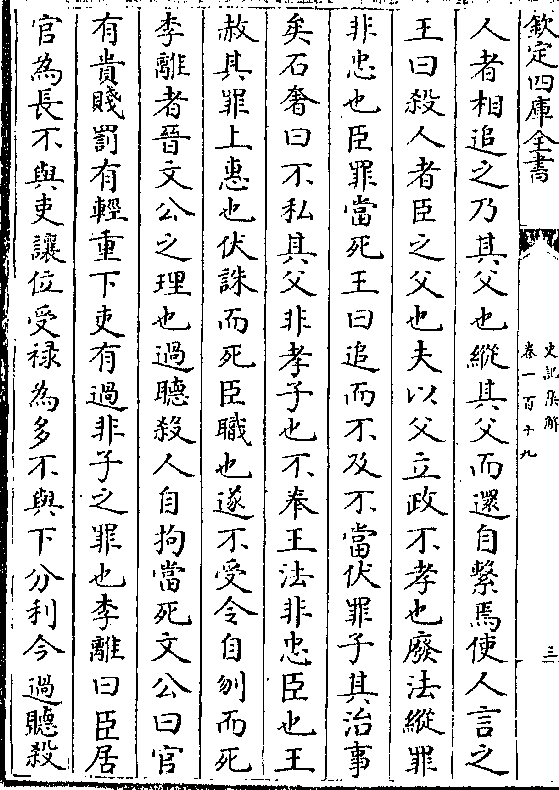 欽定四庫全書
史記集解
卷一百十九
三
人者相追之乃其父也縱其父而還自繫焉使人言之
王曰殺人者臣之父也夫以父立政不孝也廢法縱罪
非忠也臣罪當死王曰追而不及不當伏罪子其治事
矣石奢曰不私其父非孝子也不奉王法非忠臣也王
赦其罪上惠也伏誅而死臣職也遂不受令自刎而死
李離者晉文公之理也過聽殺人自拘當死文公曰官
有貴賤罰有輕重下吏有過非子之罪也李離曰臣居
官為長不與吏讓位受祿為多不與下分利今過聽殺